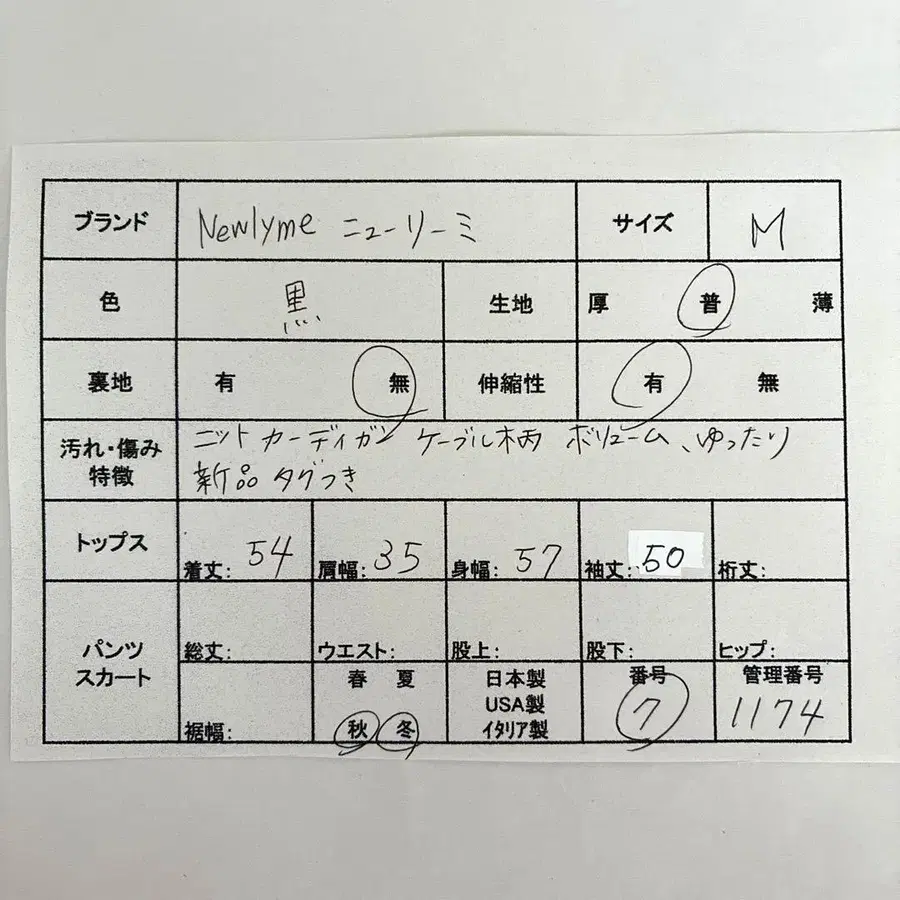 ブランド Newlyme ニューリーミ サイズ M
色 黒 生地 厚 普 薄
裏地 有 無 伸縮性 有 無
汚れ・傷み 特徴
ニットカーディガン ケーブル柄 ボリューム、ゆったり
新品タグつき
トップス 着丈: 54 肩幅: 35 身幅: 57 袖丈: 50 裄丈:
パンツ スカート
総丈: ウエスト: 股上: 股下: ヒップ:
裾幅:
春 夏
秋 冬
日本製
USA製
イタリア製
番号
7
管理番号
1174